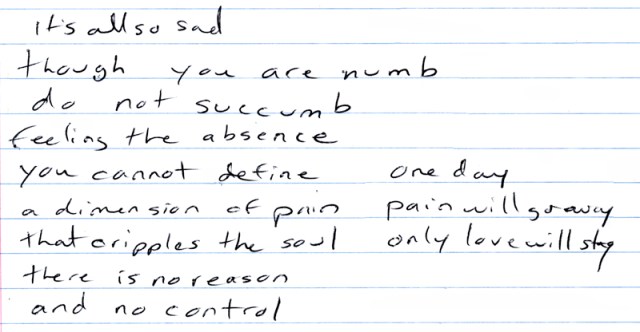 it's all so sad
though you are numb
do not succumb
feeling the absence
you cannot define
a dimension of pain
that cripples the soul
there is no reason
and no control
one day
pain will go away
only love will stay